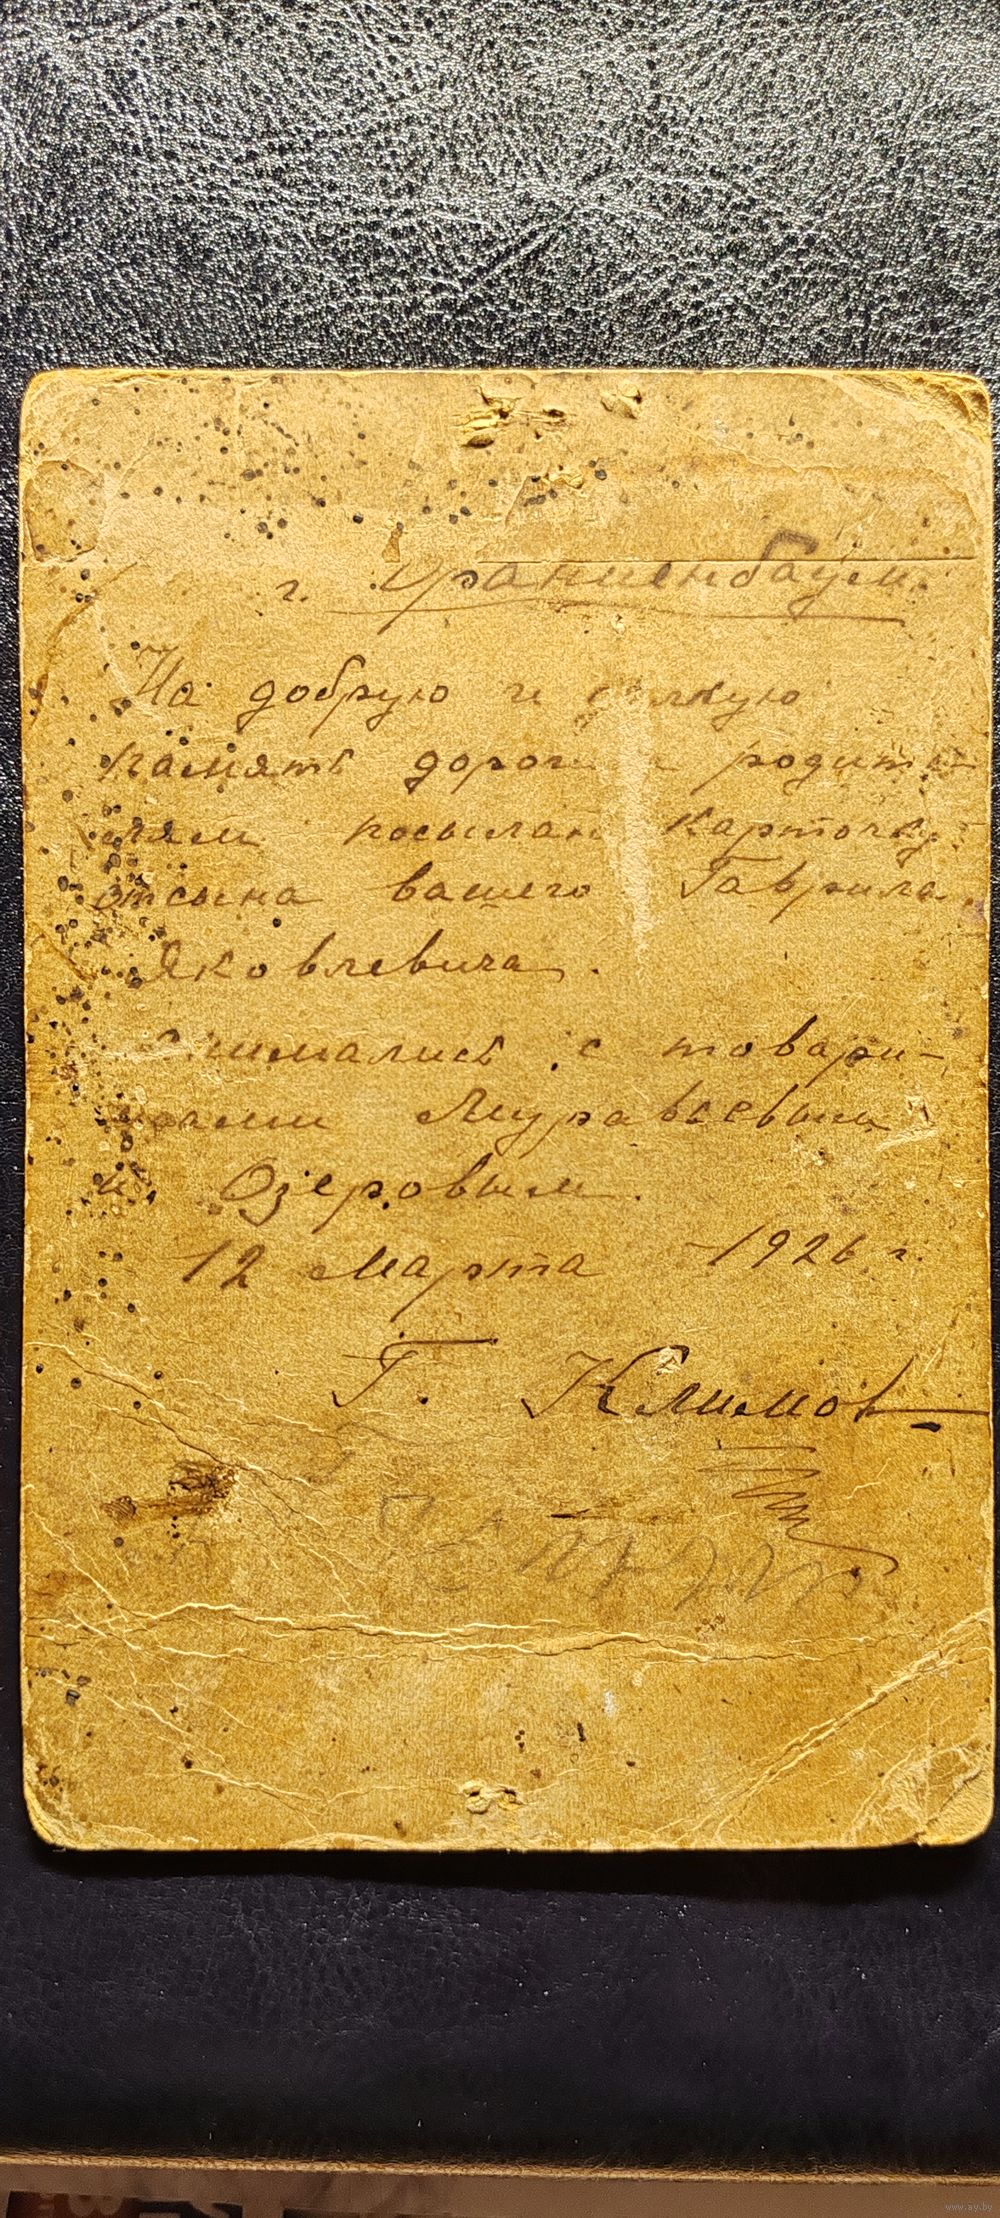 г. Ораниенбаум.
На добрую и долгую
память дорогим родите-
лям посылаю карточку
от сына вашего Гаврила
Яковлевича.
Снимались с товари-
щами Муравьевым
и Озеровым.
12 марта 1926 г.
Г. Климов
www.ay.by